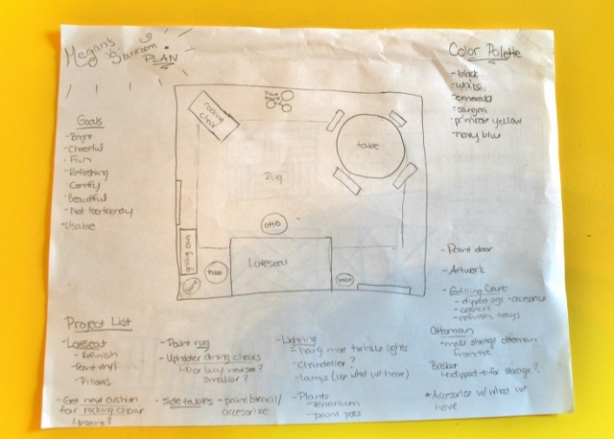 Megan's
Sunroom
PLAN
Color Palette
- black
- white
- emerald
- primrose yellow
- navy blue
Goals
- Bright
- Cheerful
- Fun
- Refreshing
- Comfy
- Beautiful
- Not too trendy
- Usable
rocking
chair
table
Rug
otto
Loveseat
table
- Paint door
- Artwork
- Grilling Cart
- cabinet
- refinish trays
Ottoman
- make storage ottoman
Basket
for storage?
* Accessorize w/ what we
have
Project List
- Loveseat
- Refinish
- Paint vinyl
- Pillows
- Get new cushion
for rocking chair
- Paint rug
- Upholster dining chairs
- Or buy new ones?
smaller?
- Side tables - paint/stencil/
accessorize
- Lighting
- hang more twinkle lights
- Chandelier?
- lamps (use what we have)
- Plants
- terrarium
- paint pots